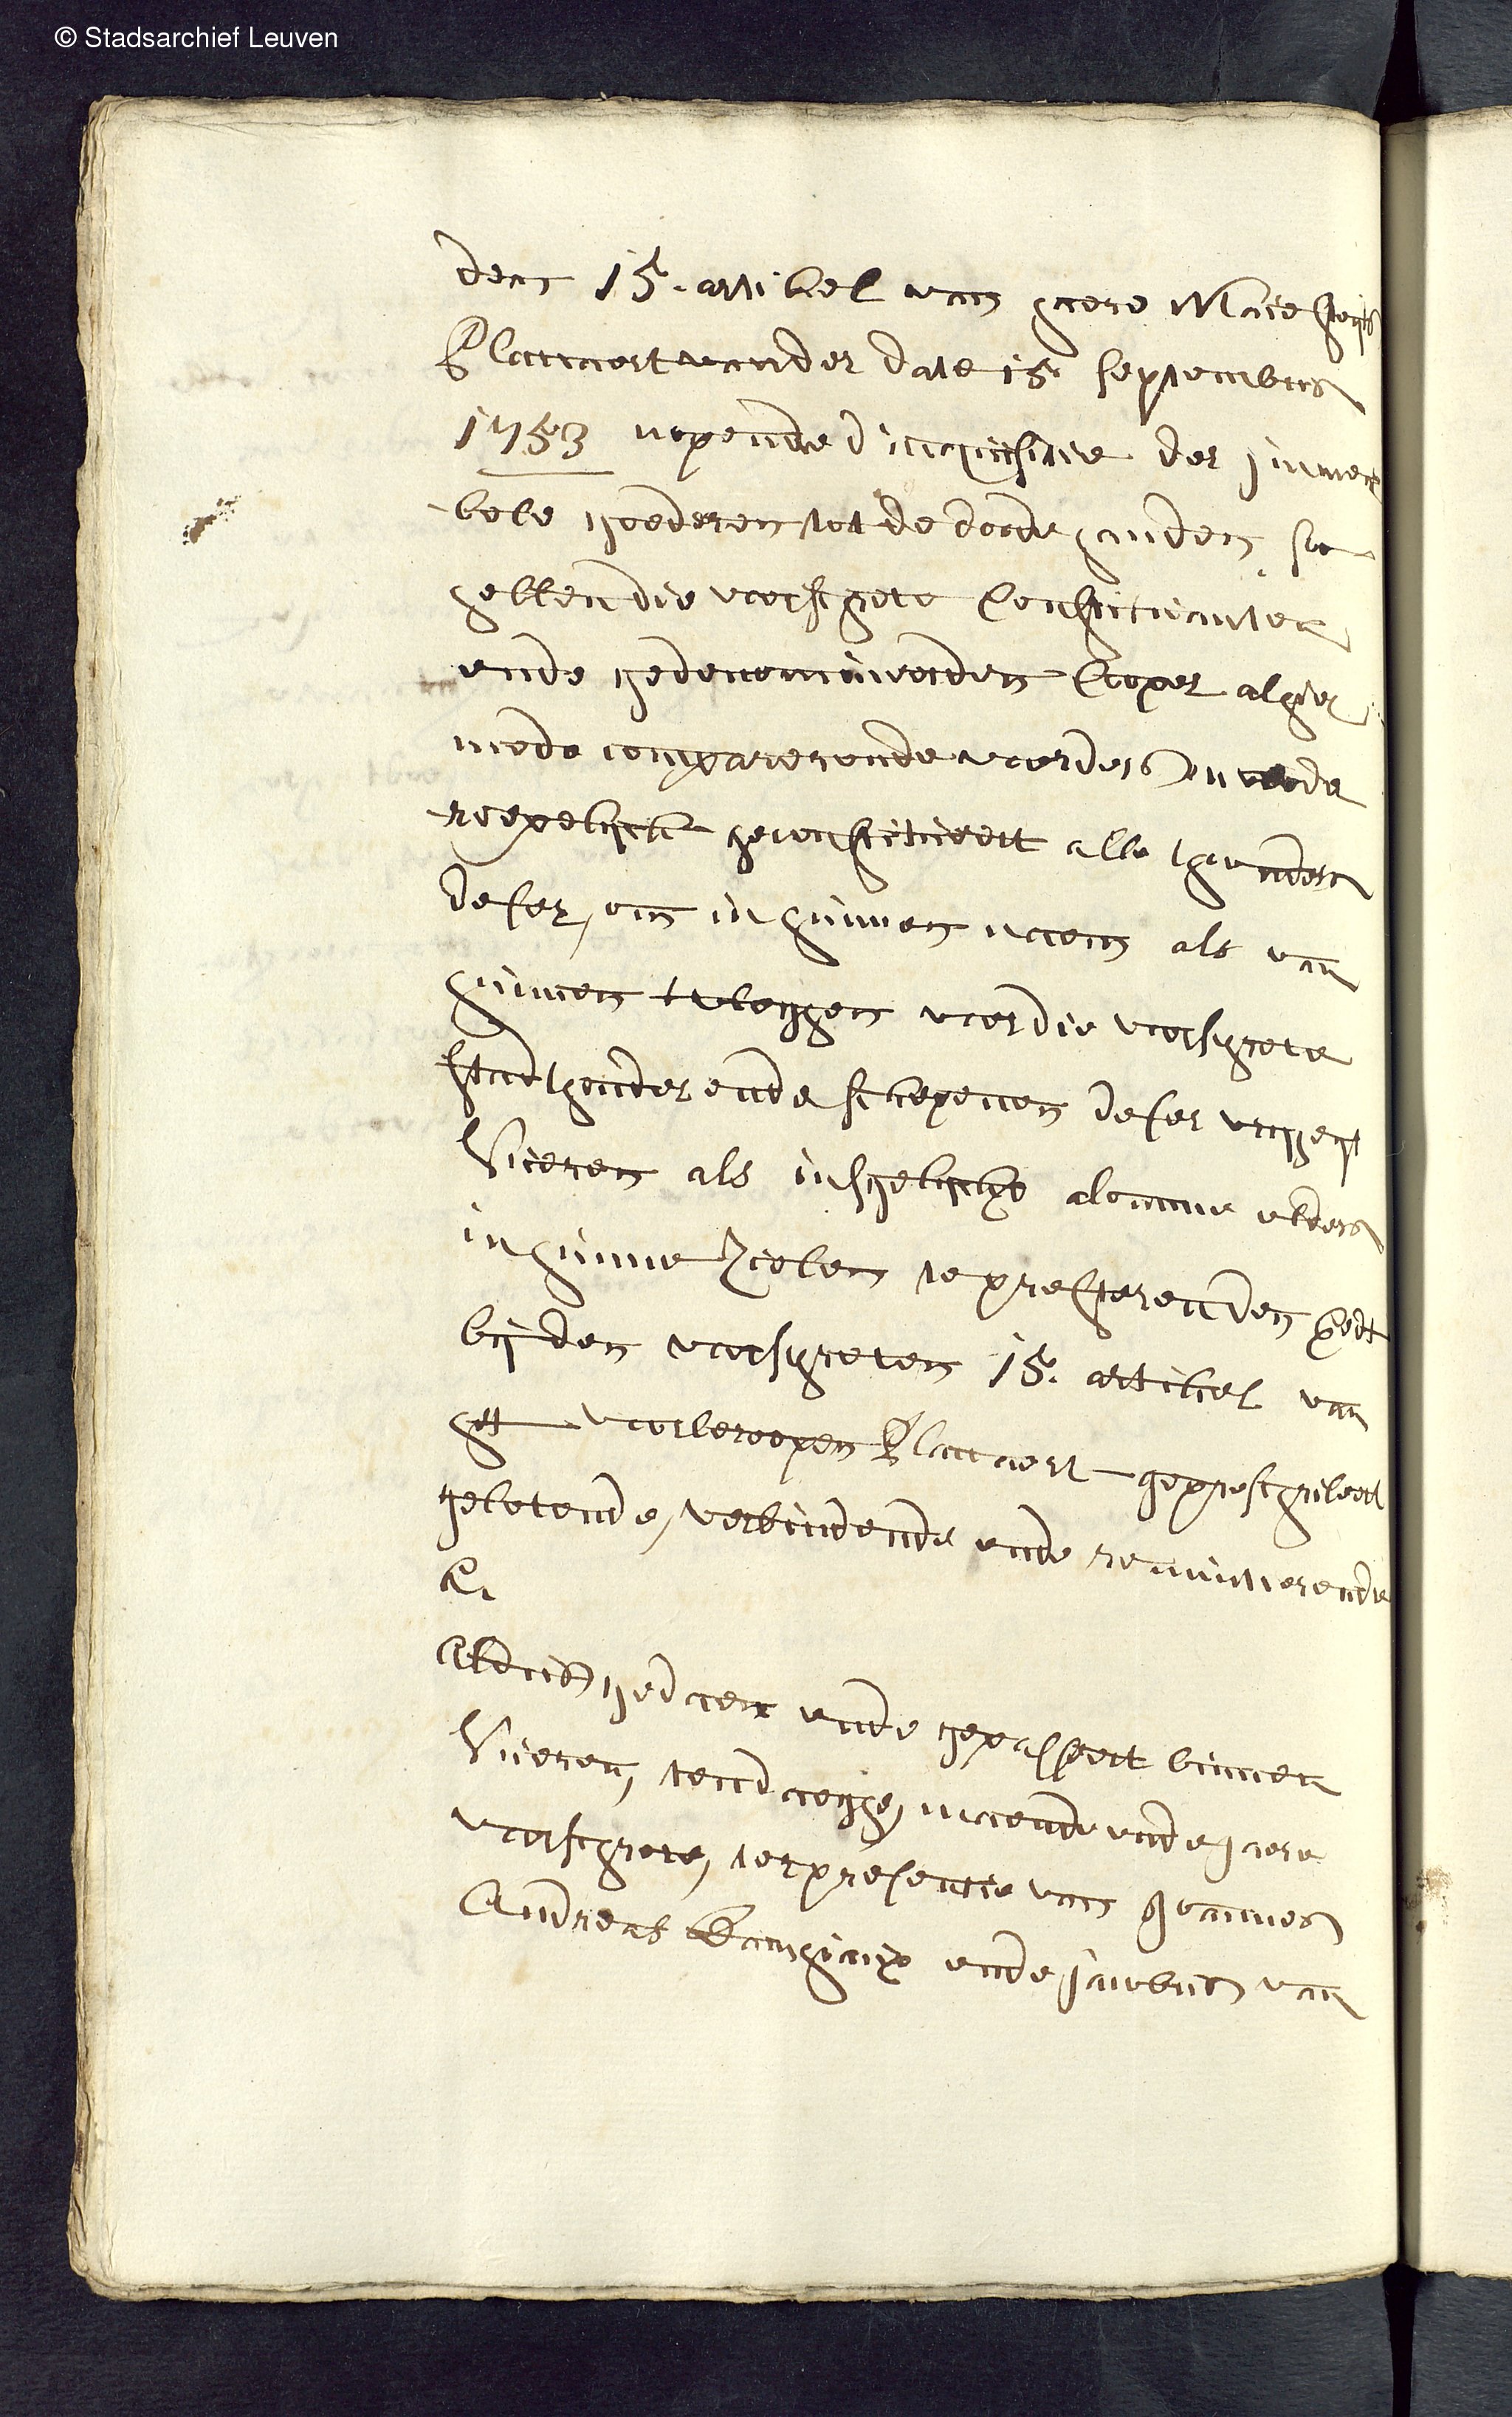 © Stadsarchief Leuven
den 15. artikel van haere Majesteyts
Placcaert vander date 15 septembris
1753 nopende d'acquisitie der immeu
bele goederen tot de doode handen, soo
hebben die voorschreve Constituanten
ende gedenomineerden Cooper alhier
mede comparerende voorders onwede
roepelyck geconstitueert alle thoonders
deser, om in hunnen naem als van
hunnen twleghen voor die voorschreve
stadthouder ende schepenen deser vryheyt
Vueren als insgelyckx alomme elders
in hunne Zielen te presteren den Eedt
by den voorschreven 15. artikel van
het voorberoepen Placcaert gepreschribeert
gelovende, verbindende ende renuntierende
&a
Aldus gedaen ende gepasseert binnen
Vueren, ten daeghe, maende ende jaere
voorschreve, ter presentie van Joannes
Andreas ende Jacobus van